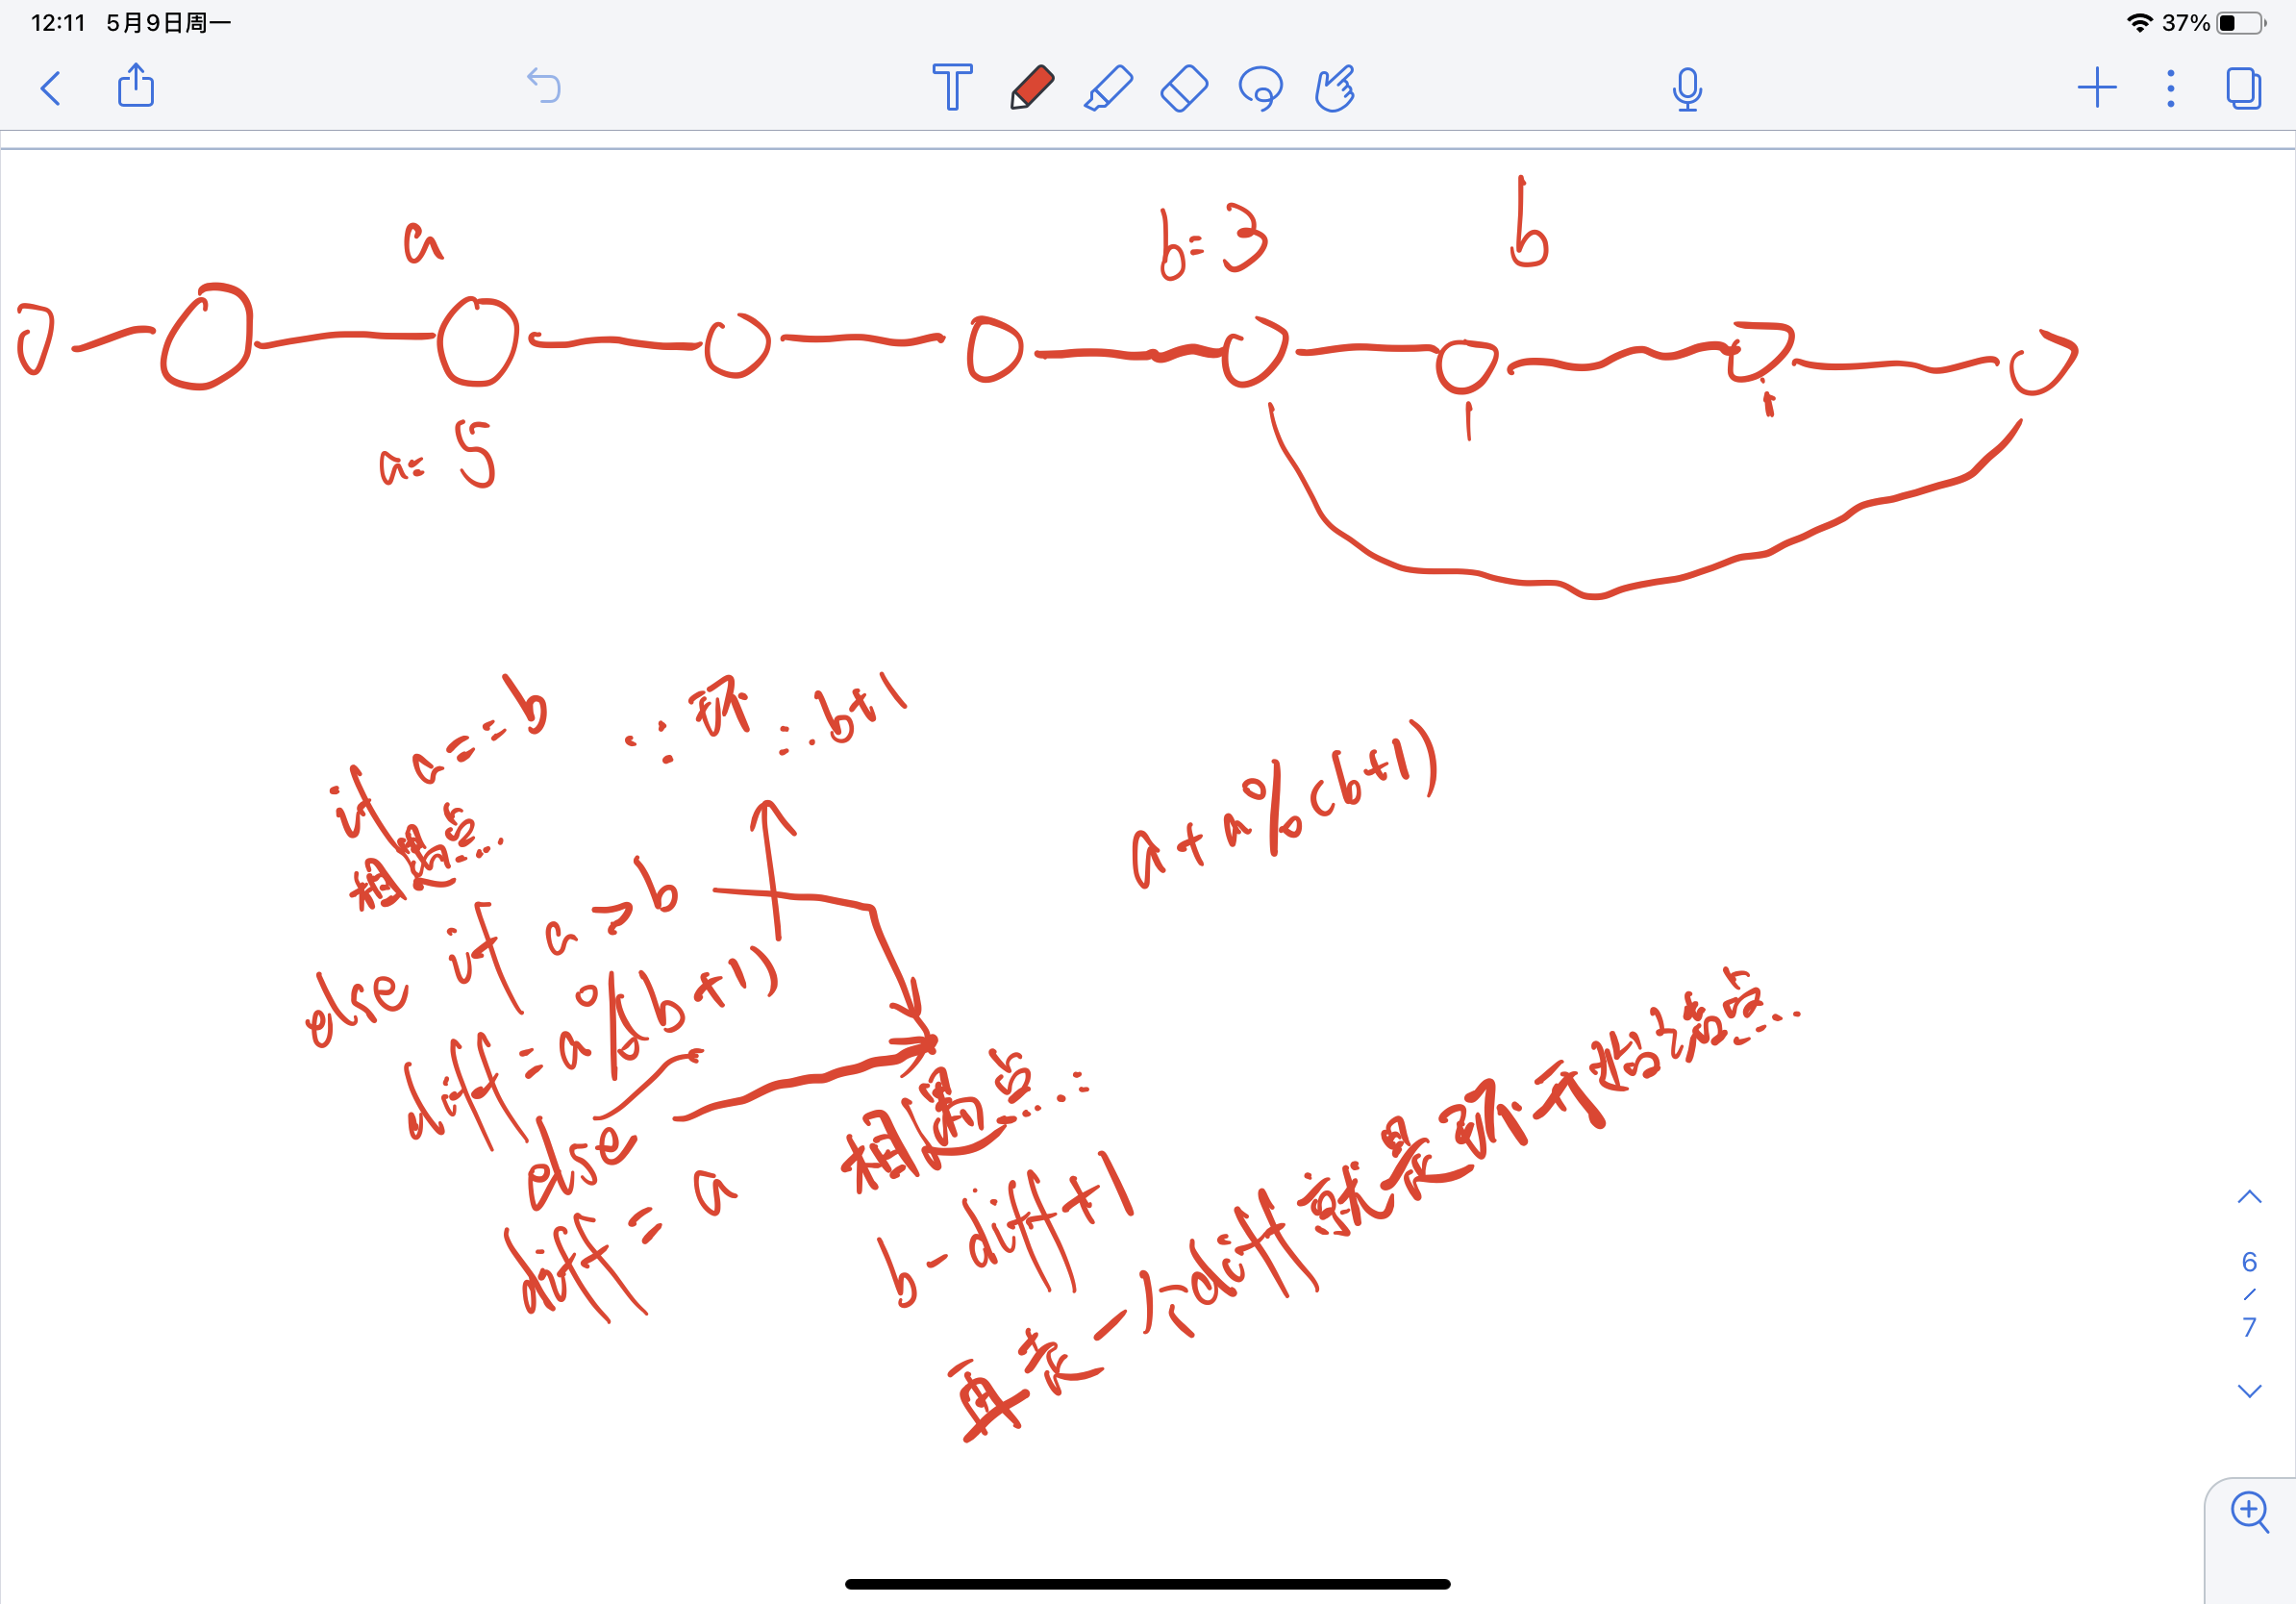 12:11 5月9日周一
37%
a
b=3
b
a=5
if a==b
∵环
∴b+1
相遇点……
a+a%(b+1)
else if a>b
diff=a%(b+1)
else
diff=a
相遇点……
b-diff+1
再走一个diff就是走到环开始之结点……
6
/
7